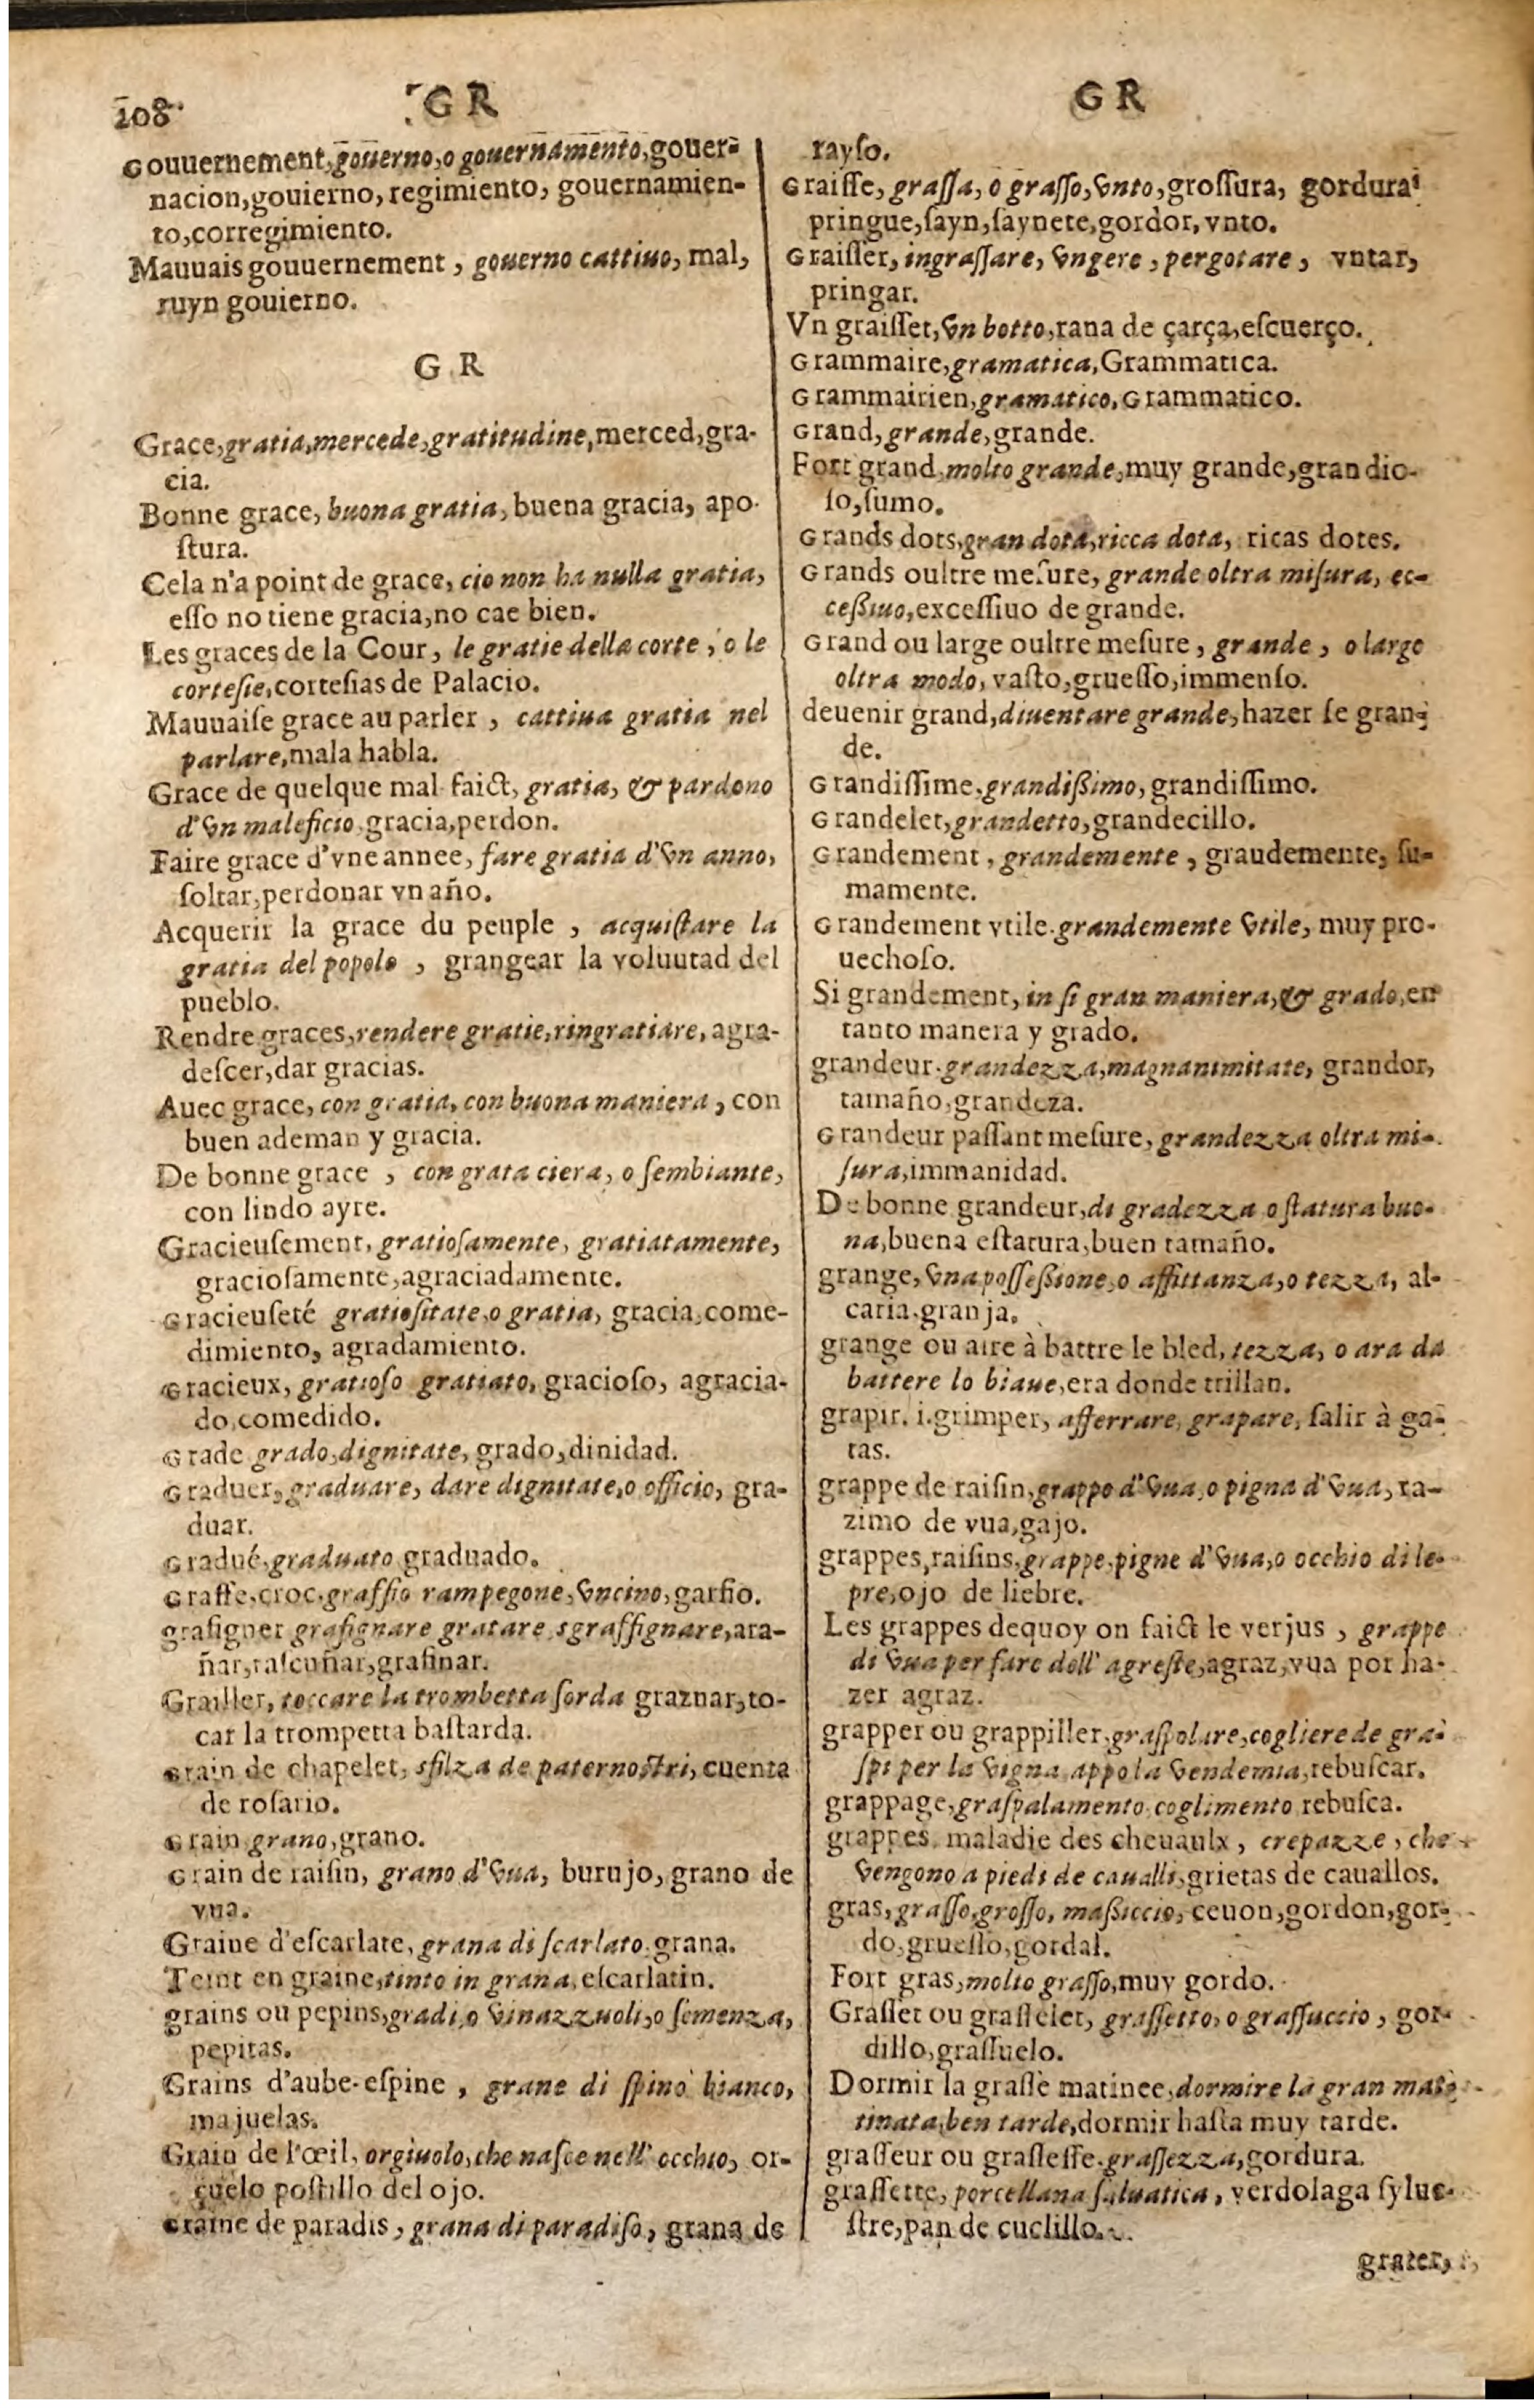 108 GR
Gouuernement, gouerno, o gouernamento, gouer-
nacion, gouierno, regimiento, gouernamien-
to, corregimiento.
Mauuais gouuernement, gouerno cattiuo, mal,
ruyn gouierno.
GR
Grace, gratia, mercede, gratitudine, merced, gra-
cia.
Bonne grace, buona gratia, buena gracia, apo-
ſtura.
Cela n'a point de grace, cio non ha nulla gratia,
eſſo no tiene gracia, no cae bien.
Les graces de la Cour, le gratie della corte, o le
corteſie, corteſias de Palacio.
Mauuaiſe grace au parler, cattiua gratia nel
parlare, mala habla.
Grace de quelque mal faict, gratia, & pardono
d'vn maleficio, gracia, perdon.
Faire grace d'vne annee, fare gratia d'vn anno,
ſoltar, perdonar vn año.
Acquerir la grace du peuple, acquiſtare la
gratia del popolo, grangear la voluutad del
pueblo.
Rendre graces, rendere gratie, ringratiare, agra-
deſcer, dar gracias.
Auec grace, con gratia, con buona maniera, con
buen ademan y gracia.
De bonne grace, con grata ciera, o ſembiante,
con lindo ayre.
Gracieuſement, gratioſamente, gratiatamente,
gracioſamente, agraciadamente.
Gracieuſeté gratioſitate, o gratia, gracia, come-
dimiento, agradamiento.
Gracieux, gratioſo gratiato, gracioſo, agracia-
do, comedido.
Grade grado, dignitate, grado, dinidad.
Graduer, graduare, dare dignitate, o officio, gra-
duar.
Gradué, graduato graduado.
Graffe, croc, graffio rampegone, vncino, garfio.
grafigner grafignare gratare sgraffignare, ara-
ñar, raſcuñar, grafinar.
Grailler, toccare la trombetta ſorda graznar, to-
car la trompetta baſtarda.
Grain de chapelet, sfilza de paternoſtri, cuenta
de roſario.
Grain grano, grano.
Grain de raiſin, grano d'vua, burujo, grano de
vua.
Graine d'eſcarlate, grana di ſcarlato, grana.
Teint en graine, tinto in grana, eſcarlatin.
grains ou pepins, gradi, o vinazzuoli, o ſemenza,
pepitas.
Grains d'aube-eſpine, grane di ſpino bianco,
majuelas.
Grain de l'œil, orgiuolo, che naſce nell' occhio, or-
çuelo poſtillo del ojo.
Graine de paradis, grana di paradiſo, grana de
GR
rayſo.
Graiſſe, graſſa, o graſſo, vnto, groſſura, gordura
pringue, ſayn, ſaynete, gordor, vnto.
Graiſſer, ingraſſare, vngere, pergotare, vntar,
pringar.
Vn graiſſet, vn botto, rana de çarça, eſcuerço.
Grammaire, gramatica, Grammatica.
Grammairien, gramatico, Grammatico.
Grand, grande, grande.
Fort grand, molto grande, muy grande, grandio-
ſo, ſumo.
Grands dots, gran dota, ricca dota, ricas dotes.
Grands oultre meſure, grande oltra miſura, ec-
ceßiuo, exceſſiuo de grande.
Grand ou large oultre meſure, grande, o largo
oltra modo, vaſto, grueſſo, immenſo.
deuenir grand, diuentare grande, hazer ſe gran-
de.
Grandiſſime, grandißimo, grandiſſimo.
Grandelet, grandetto, grandecillo.
Grandement, grandemente, graudemente, ſu-
mamente.
Grandement vtile, grandemente vtile, muy pro-
uechoſo.
Si grandement, in ſi gran maniera, & grado, en
tanto manera y grado.
grandeur, grandezza, magnanimitate, grandor,
tamaño, grandeza.
Grandeur paſſant meſure, grandezza oltra mi-
ſura, immanidad.
De bonne grandeur, di gradezza o ſtatura buo-
na, buena eſtatura, buen tamaño.
grange, vna poſſeßione, o affittanza, o tezza, al-
caria, granja.
grange ou aire à battre le bled, tezza, o ara da
battere lo biaue, era donde trillan.
grapir. i. grimper, afferrare, grapare, ſalir à ga-
tas.
grappe de raiſin, grappo d'vua, o pigna d'vua, ra-
zimo de vua, gajo.
grappes, raiſins, grappe, pigne d'vua, o occhio di le-
pre, ojo de liebre.
Les grappes dequoy on faict le verjus, grappe
di vua per fare dell' agreſte, agraz, vua por ha-
zer agraz.
grapper ou grappiller, graſpolare, cogliere de gra-
ſpi per la vigna appo la vendemia, rebuſcar.
grappage, graſpalamento, coglimento rebuſca.
grappes, maladie des cheuaulx, crepazze, che
vengono a piedi de caualli, grietas de cauallos.
gras, graſſo, groſſo, maßiccio, ceuon, gordon, gor-
do, grueſſo, gordal.
Fort gras, molto graſſo, muy gordo.
Graſſet ou graſſelet, graſſetto, o graſſuccio, gor-
dillo, graſſuelo.
Dormir la graſſe matinee, dormire la gran mat-
tinata, ben tarde, dormir haſta muy tarde.
graſſeur ou graſſeſſe, graſſezza, gordura.
graſſette, porcellana ſaluatica, verdolaga ſylue-
ſtre, pan de cuclillo.
grater,